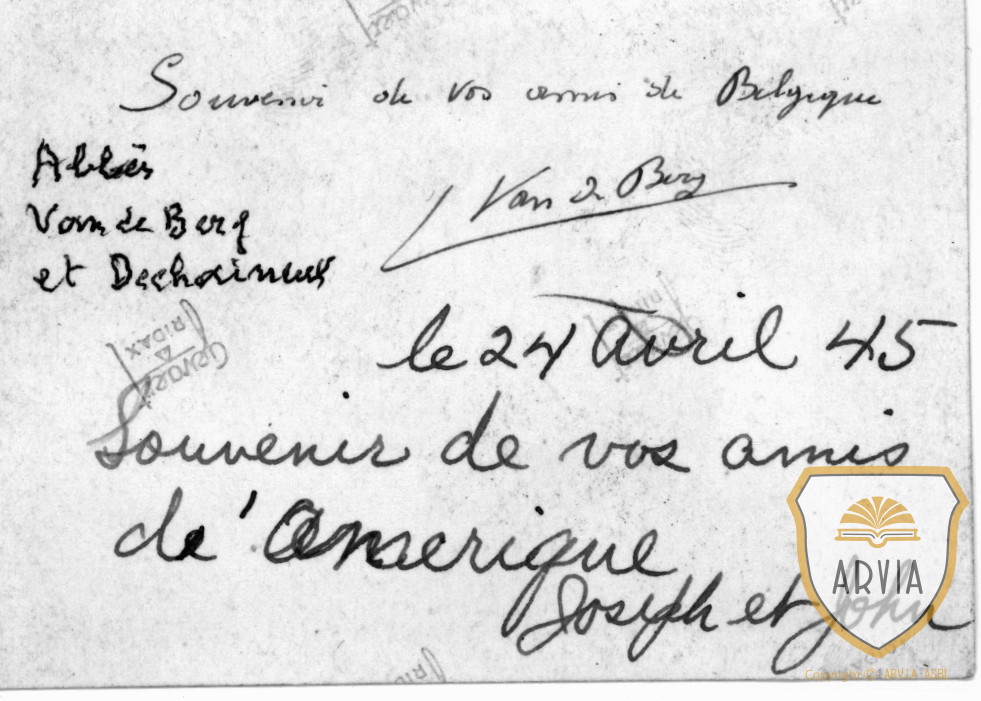 Souvenir de vos amis de Belgique
Abbés
Van de Berg
et Dechaineux
Van de Berg
le 24 Avril 45
Souvenir de vos amis
de l'Amerique
Joseph et John
GEVAERT
RIDAX
ARVIA
Copyright © ARVIA ASBL